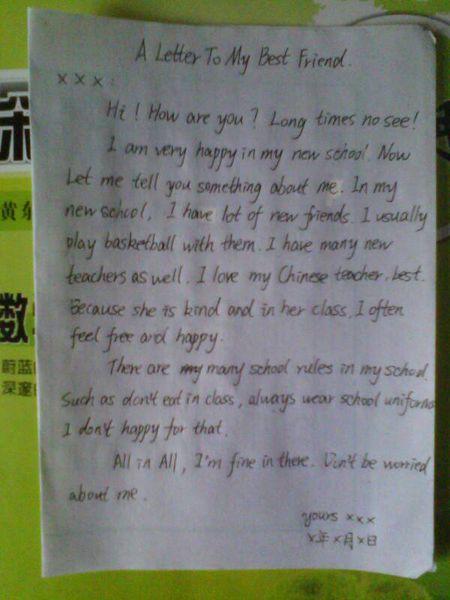 A Letter To My Best Friend.
×××:
Hi! How are you? Long times no see!
I am very happy in my new school. Now
Let me tell you something about me. In my
new school, I have lot of new friends. I usually
play basketball with them. I have many new
teachers as well. I love my Chinese teacher, best.
Because she is kind and in her class, I often
feel free and happy.
There are many school rules in my school.
Such as don't eat in class, always wear school uniforms
I don't happy for that.
All in All, I'm fine in there. Don't be worried
about me.
yours ×××
×年×月×日
黄东
数
蔚蓝
深邃